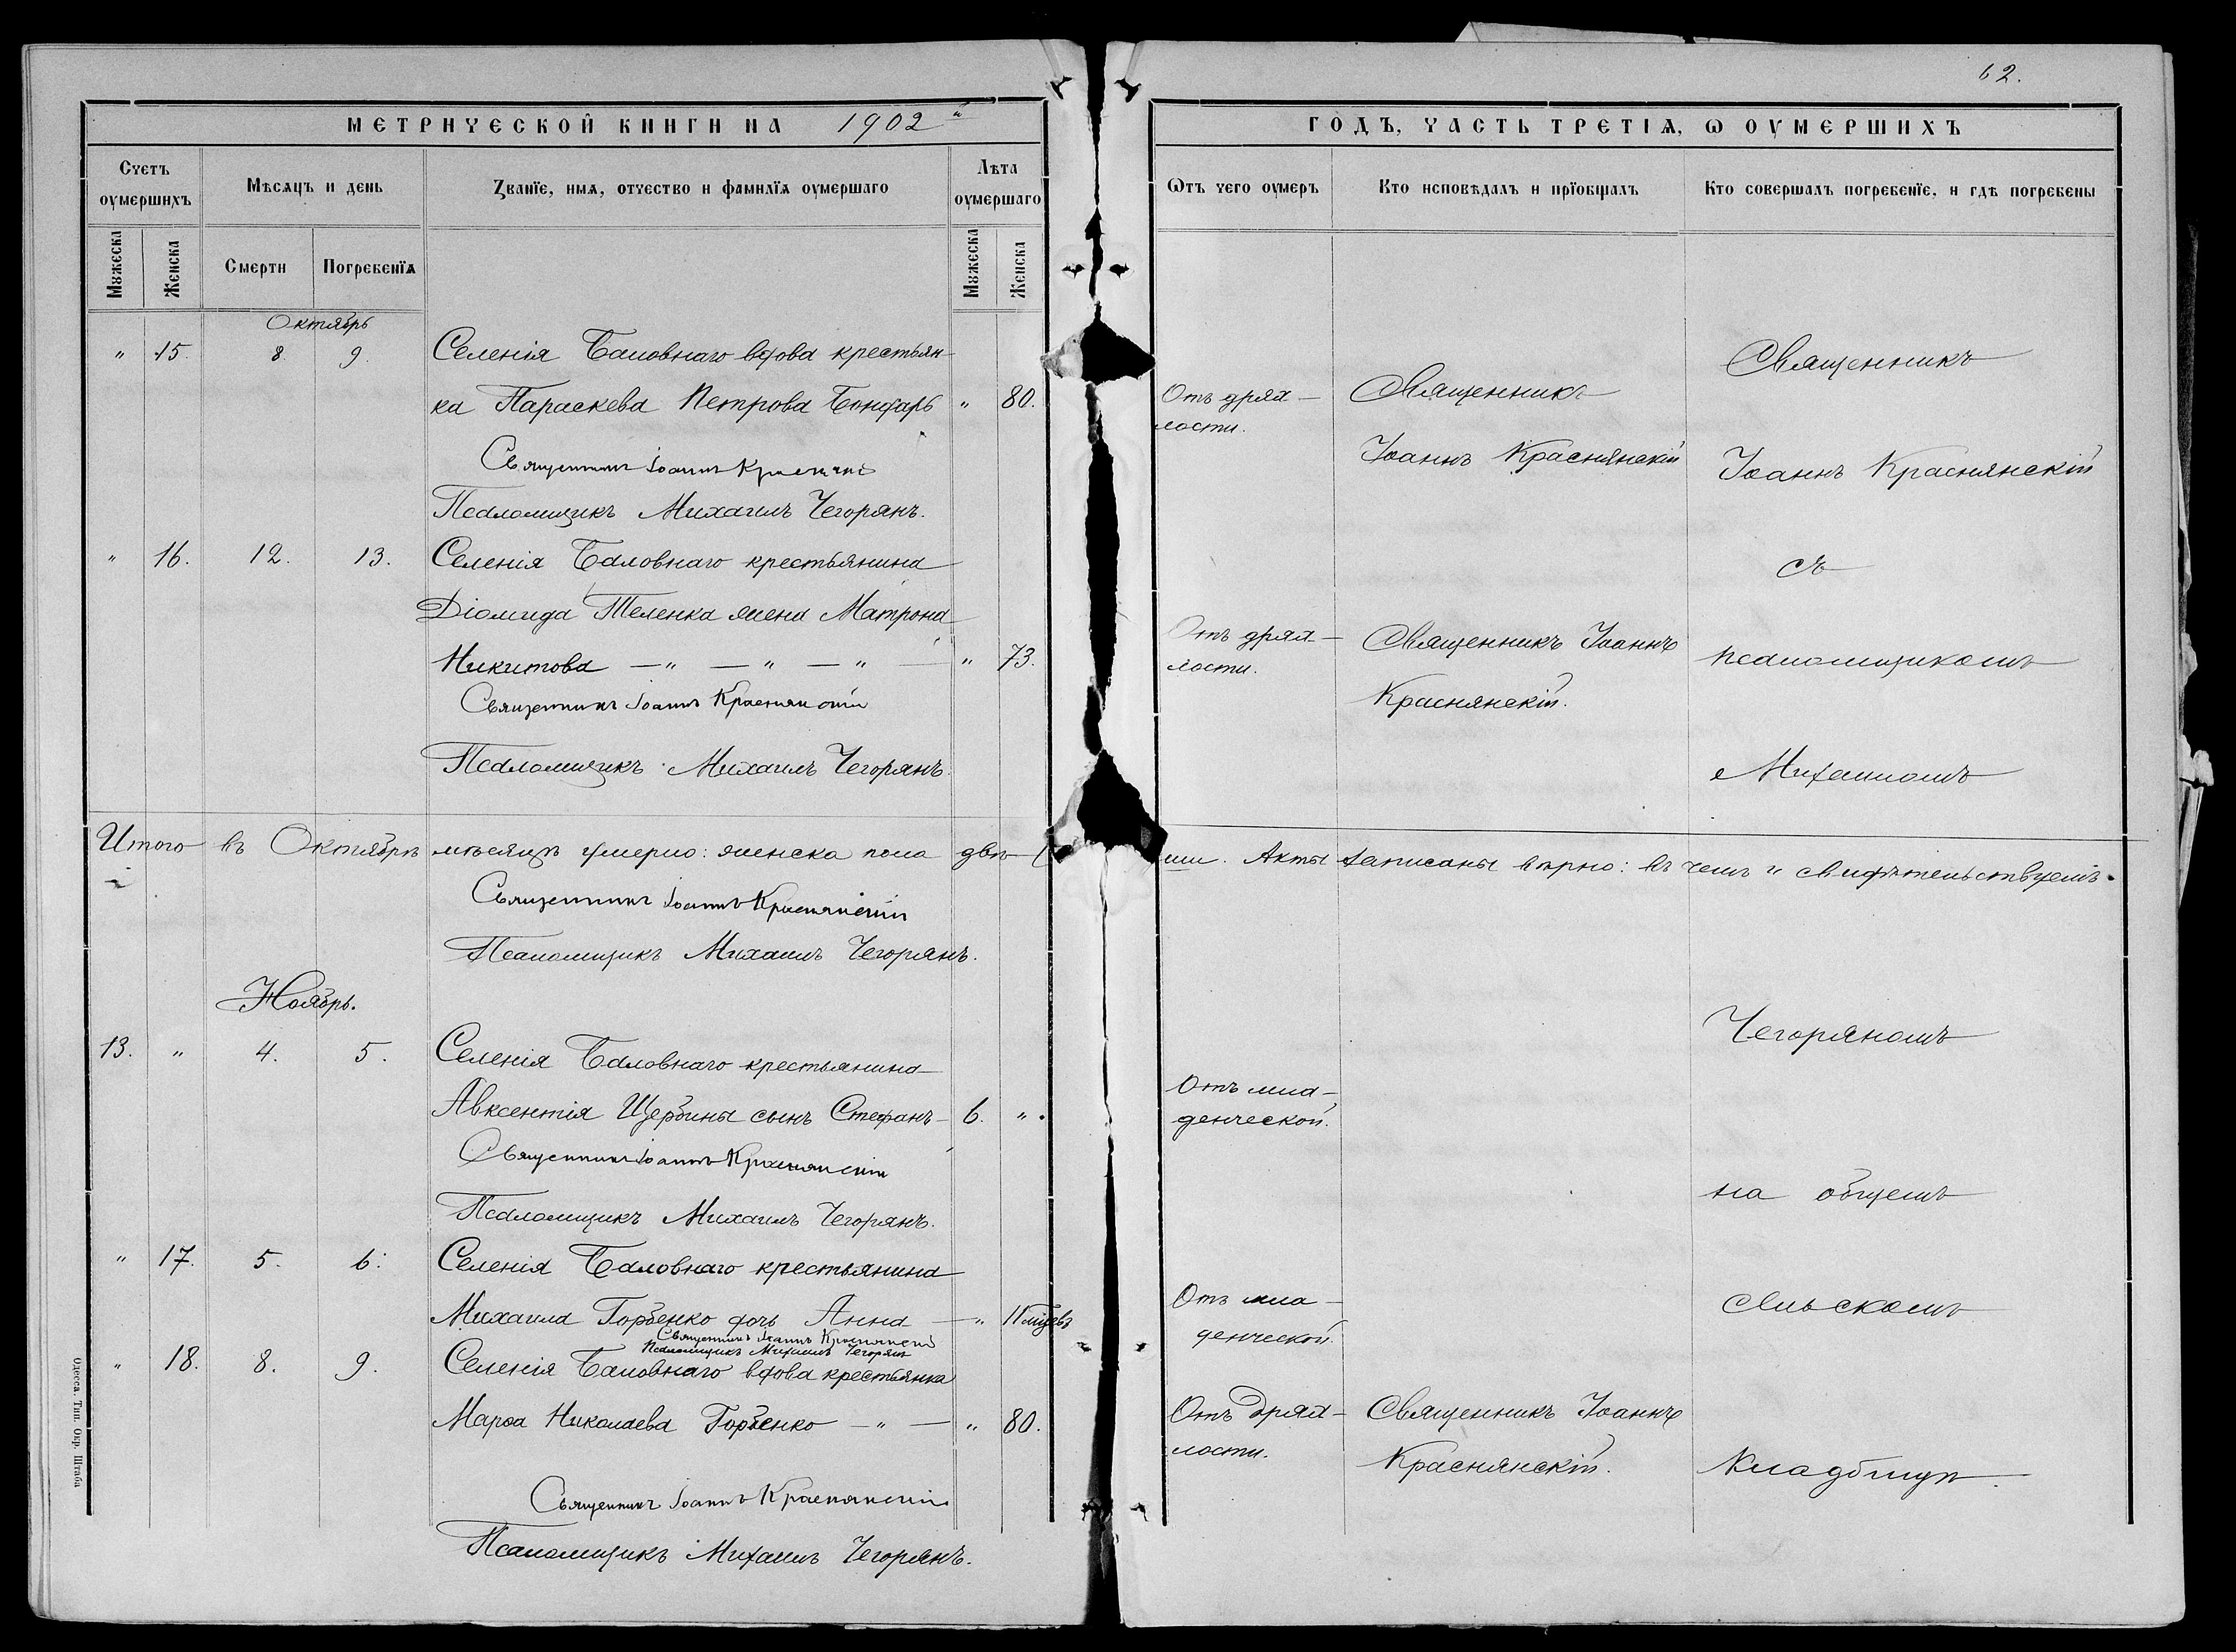 62.
МЕТРИЧЕСКОЙ КНИГИ НА 1902й
ГОДЪ, ЧАСТЬ ТРЕТІѦ, Ѡ ОУМЕРШИХЪ
Счетъ оумершихъ
Мѣсѧцъ и день
Званїе, имѧ, отчество и фамилїѧ оумершаго
Лѣта оумершаго
Ѡтъ чего оумеръ
Кто исповѣдалъ и прїобщалъ
Кто совершалъ погребенїе, и гдѣ погребены
Мꙋжеска
Женска
Смерти
Погребенїѧ
Мꙋжеска
Женска
Октябрь
" 15. 8. 9. Селенія Баловнаго вдова крестьян-
ка Параскева Петрова Бондарь " 80.
Священникъ Іоаннъ Краснянскій
Псаломщикъ Михаилъ Чегорянъ.
" 16. 12. 13. Селенія Баловнаго крестьянина
Діомида Теленка жена Матрона
Никитова — " — " — " — " 73.
Священникъ Іоаннъ Краснянскій
Псаломщикъ Михаилъ Чегорянъ.
Итого въ Октябрѣ мѣсяцѣ умерло: женска пола двѣ
Священникъ Іоаннъ Краснянскій
Псаломщикъ Михаилъ Чегорянъ.
Ноябрь.
13. " 4. 5. Селенія Баловнаго крестьянина
Авксентія Щербины сынъ Стефанъ — 6. "
Священникъ Іоаннъ Краснянскій
Псаломщикъ Михаилъ Чегорянъ.
" 17. 5. 6. Селенія Баловнаго крестьянина
Михаила Горбенко дочь Анна — "
Священникъ Іоаннъ Краснянскій
Псаломщикъ Михаилъ Чегорянъ
" 18. 8. 9. Селенія Баловнаго вдова крестьянка
Марѳа Николаева Горбенко — " — " 80.
Священникъ Іоаннъ Краснянскій
Псаломщикъ Михаилъ Чегорянъ.
Одесса. Тип. Окр. Штаба
Отъ дрях-
лости.
Священникъ
Іоаннъ Краснянскій
Отъ дрях-
лости.
Священникъ Іоаннъ
Краснянскій.
Акты записаны вѣрно: въ чемъ и свидѣтельствуемъ.
Отъ мла-
денческой.
Отъ мла-
денческой.
Отъ дрях-
лости.
Священникъ Іоаннъ
Краснянскій.
Священникъ
Іоаннъ Краснянскій
съ
псаломщикомъ
Михаиломъ
Чегоряномъ
на общемъ
сельскомъ
кладбищѣ.